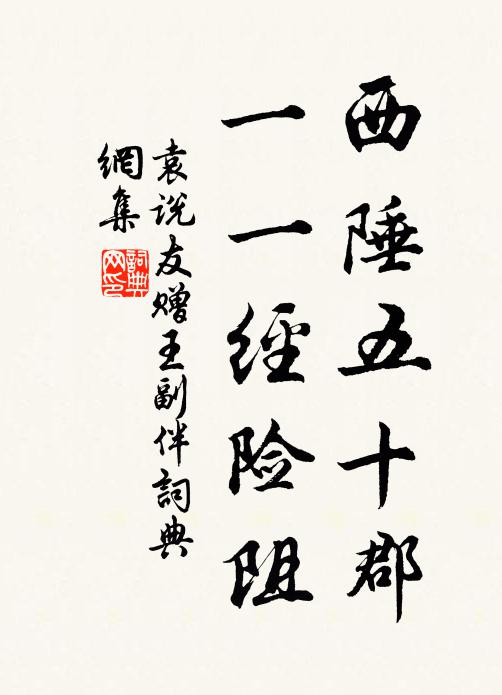 西陲五十郡
一一經险阻
袁说友赠王副伴詞典
網集
詞典
网印